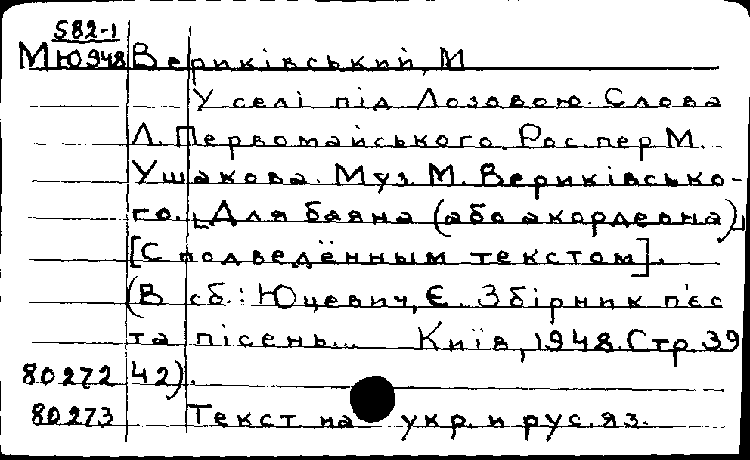 582-1
МЮ948 Вериківський, М
У селі під Лозовою. Слова
Л. Первомайського. Рос. пер М.
Ушакова. Муз. М. Вериківсько-
го. [Для баяна (або акордеона)]
[С подведённым текстом].
(В сб.: Юцевич, Є. Збірник п'єс
та пісень... Київ, 1948. Стр. 39
80272 42).
80273 Текст на укр. и рус. яз.